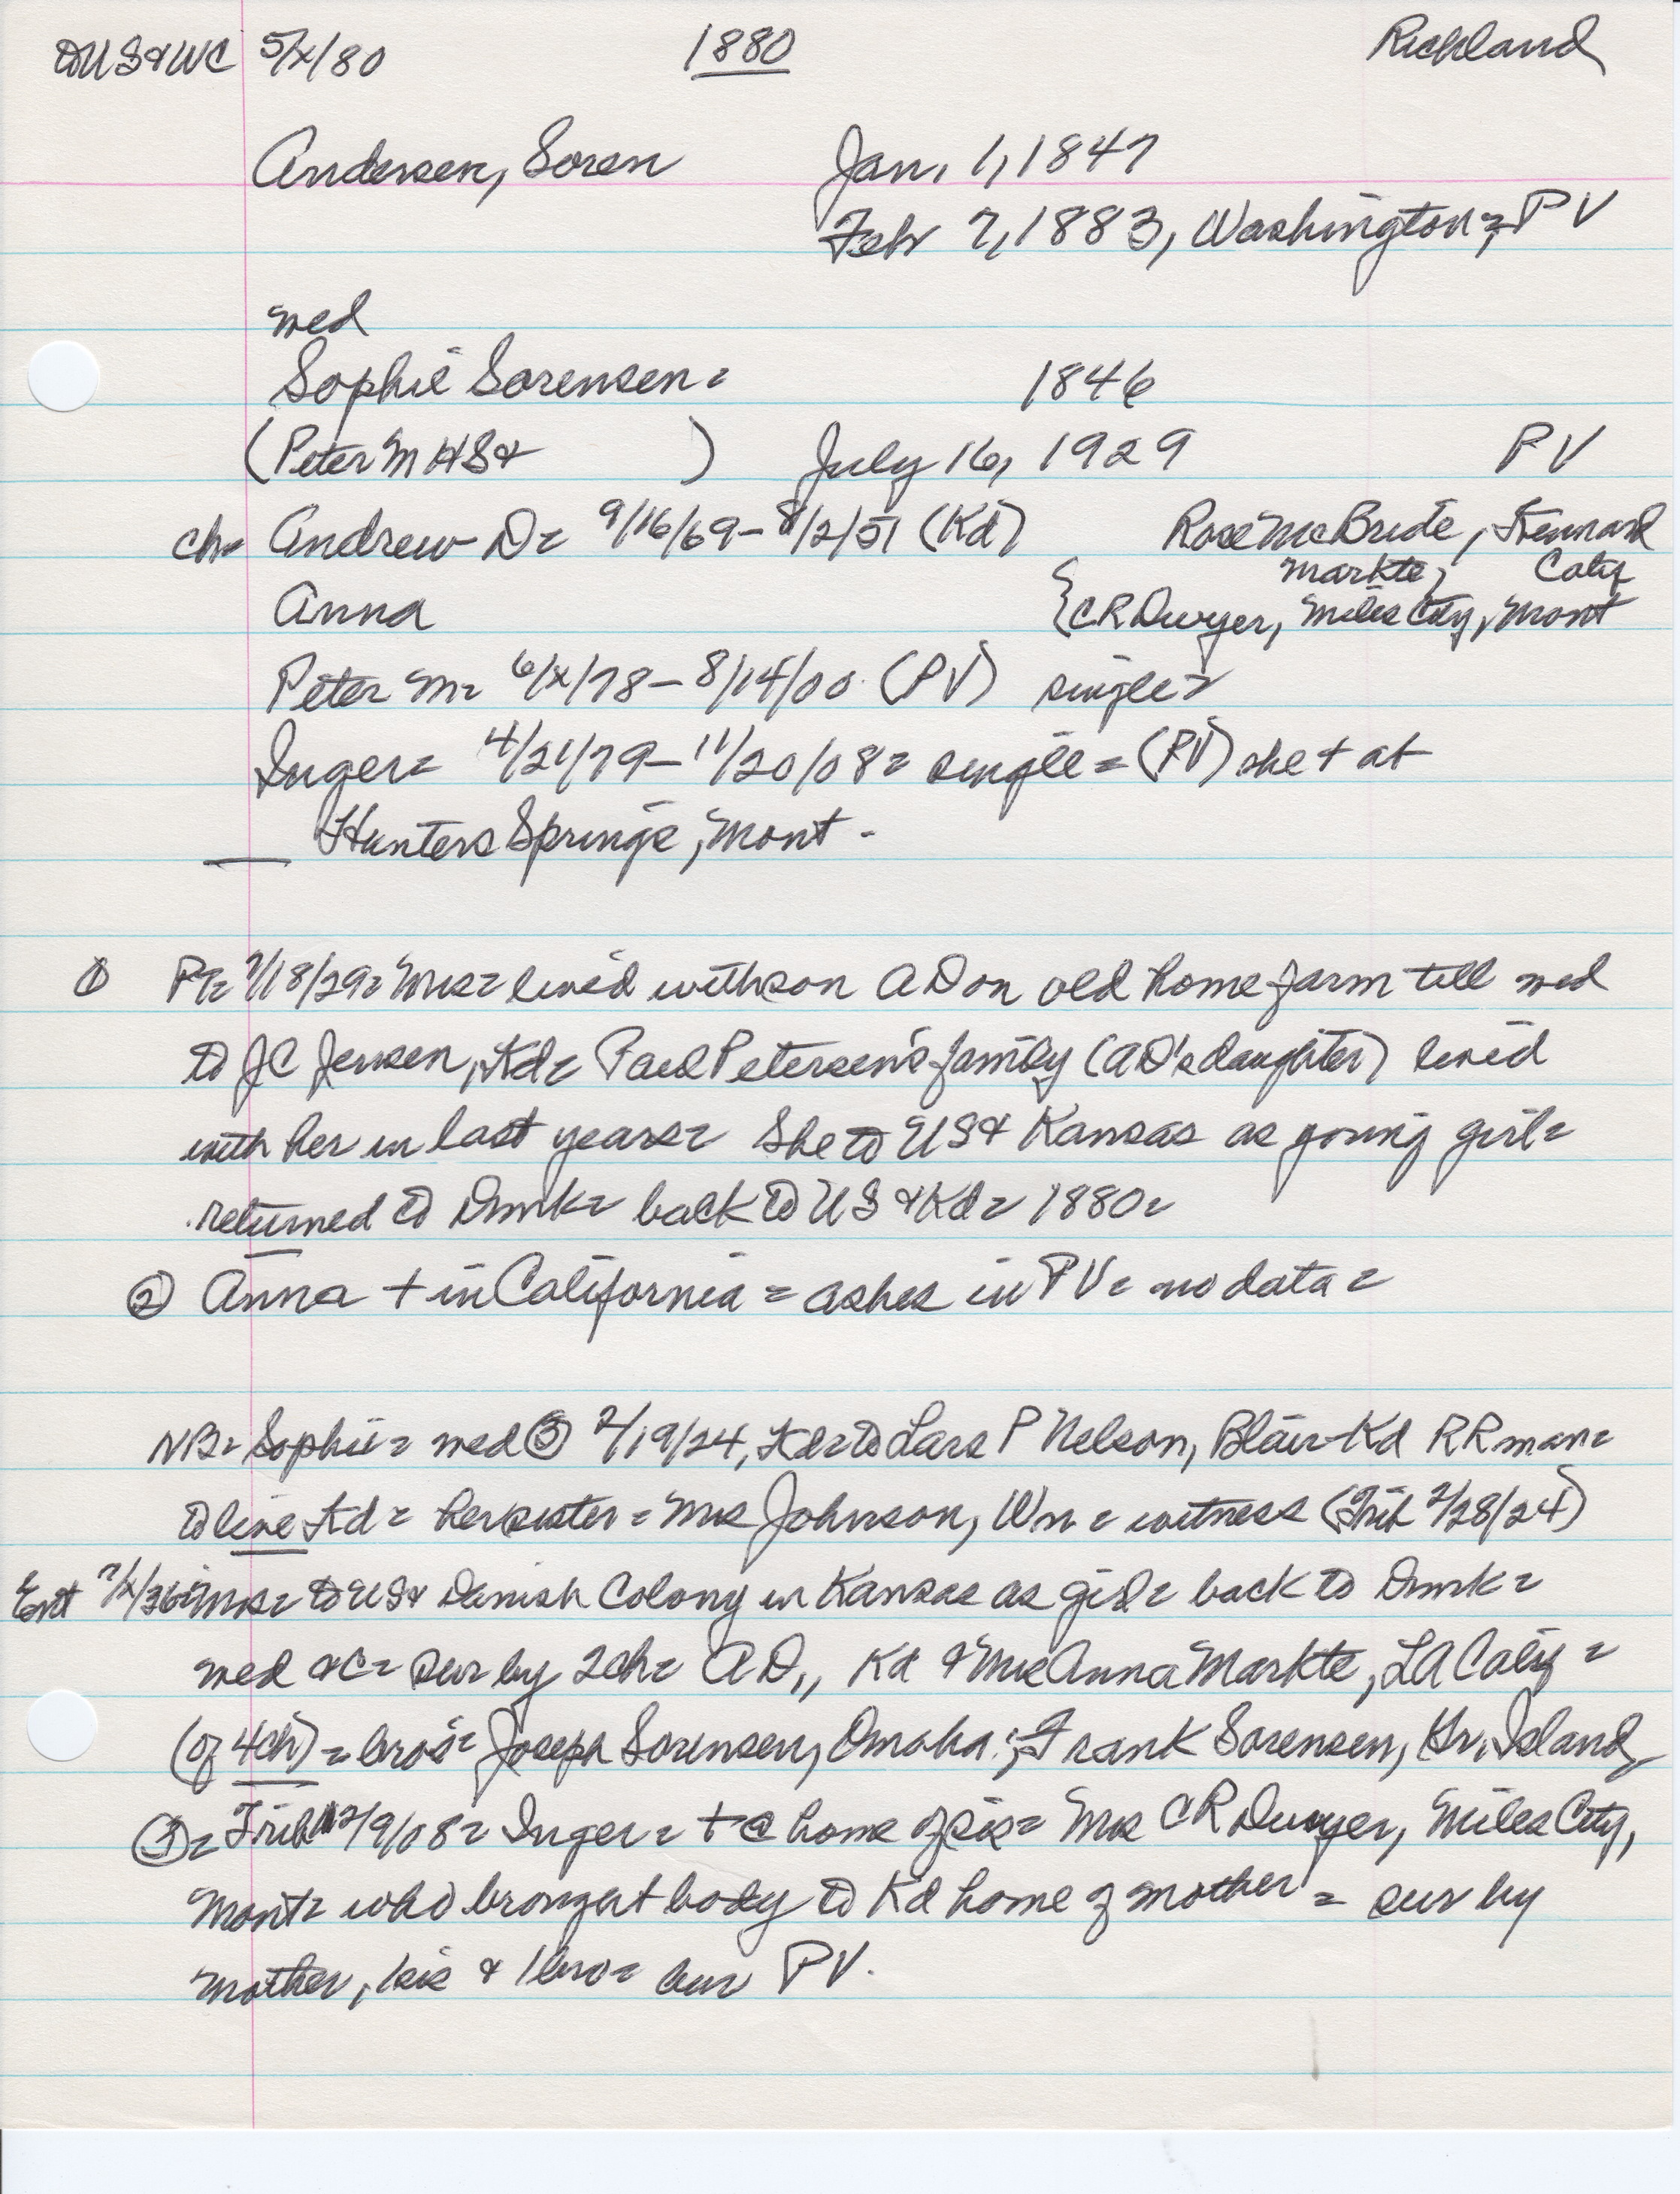 to US & WC 5/x/80 1880 Richland
Andersen, Soren Jan. 1, 1847
Febr 7, 1883, Washington, PV
med
Sophie Sorensen = 1846
(Peter M HS& ) July 16, 1929 PV
ch= Andrew D= 9/16/69 – 8/2/51 (Kd) Rose McBride, Kennard
Markte, Calif
Anna {CR Dwyer, Miles City, Mont
Peter M= 6/x/78 – 8/14/00 (PV) single=
Inger= 4/21/79 – 11/20/08= single = (PV) she + at
Hunters Springs, Mont -
① 7/18/29= Mrs= lived with son AD on old home farm till med
to JC Jensen, Kd= Paul Petersen's family (AD's daughter) lived
with her in last years= She to US & Kansas as young girl=
returned to Dmrk= back to US & Kd= 1880=
② Anna + in California = ashes in PV= no data =
NB= Sophie= med ③ 2/19/24, Kd= to Lars P Nelson, Blair-Kd RR man=
to live Kd = her sister = Mrs Johnson, Wm = witness (Trib 2/28/24)
Ent Mrs= to US & Danish Colony in Kansas as girl= back to Dmrk=
med &c= sur by 2ch= AD,, Kd & Mrs Anna Markte, LA Calif =
(of 4ch) = bros= Joseph Sorensen, Omaha; Frank Sorensen, Gr. Island
③= Trib 12/9/08= Inger= + @ home of sis= Mrs CR Dwyer, Miles City,
Mont= who brought body to Kd home of mother = sur by
mother, 1sis & 1bro= bur PV.